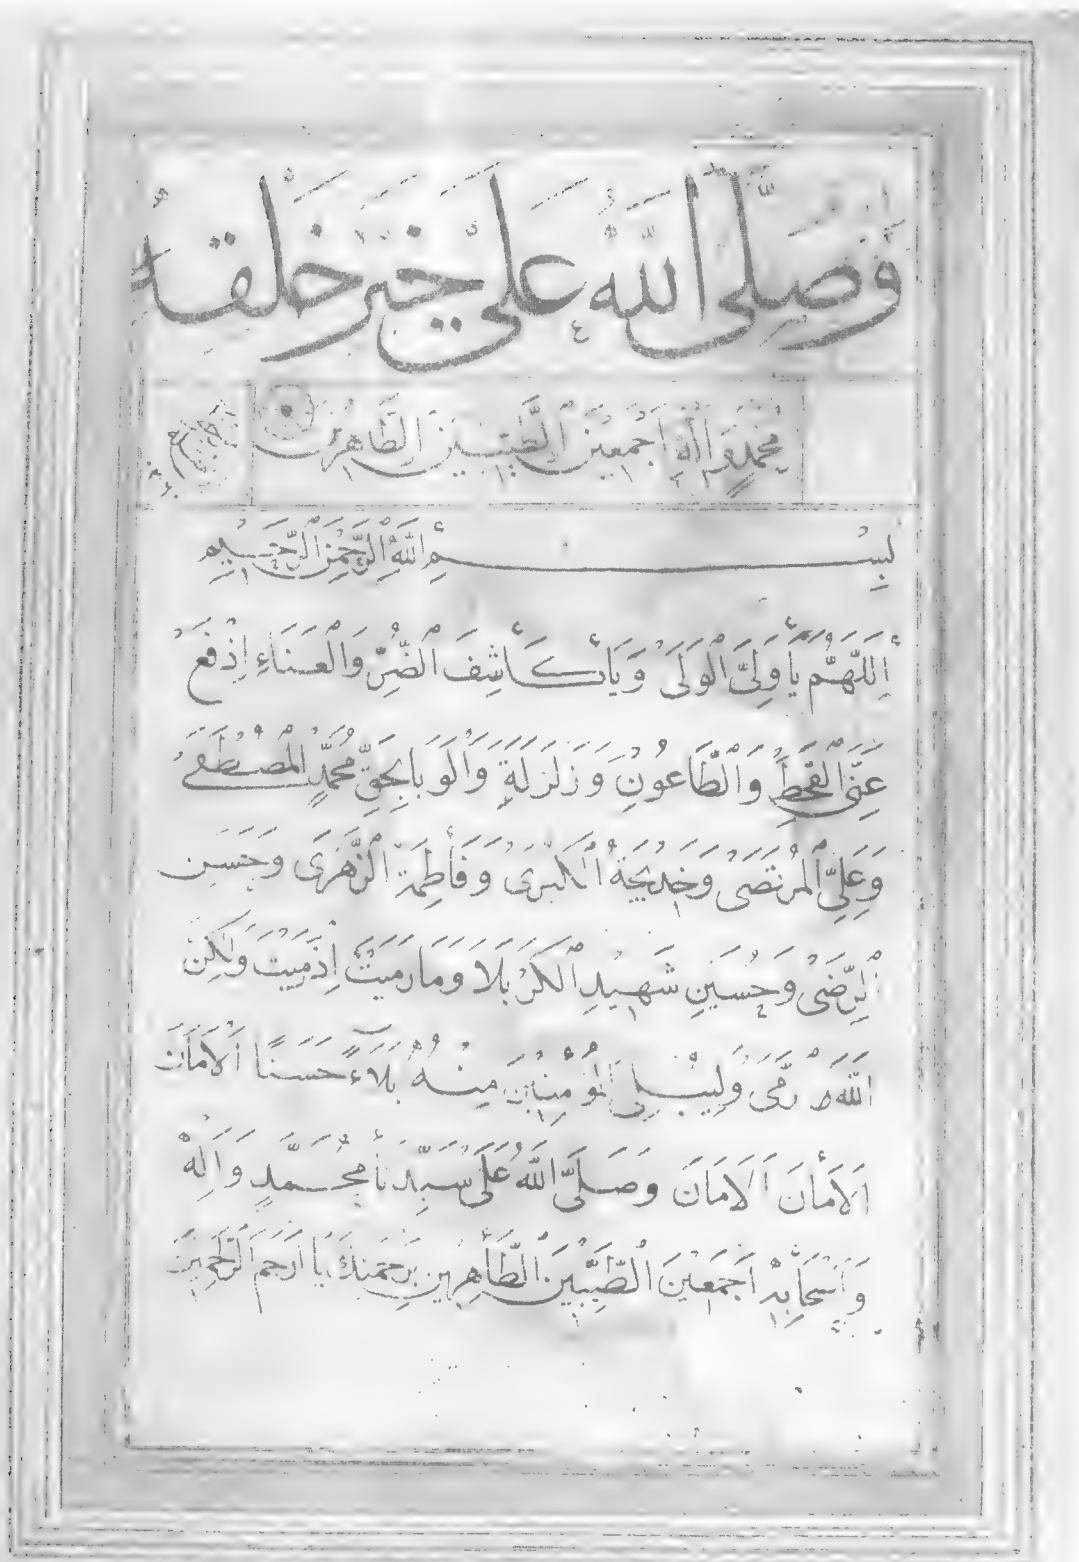 وَصَلَّى اللَّهُ عَلَى خَيْرِ خَلْقِهِ
مُحَمَّدٍ وَاٰلِهِ اَجْمَعِينَ الطَّيِّبِينَ الطَّاهِرِين
بِسْمِ اللَّهِ الرَّحْمٰنِ الرَّحِيمِ
اَللّٰهُمَّ يَا وَلِيَّ الْوَلَى وَيَا كَاشِفَ الضُّرِّ وَالْعَنَاءِ اِدْفَعْ
عَنَّى الْقَحْطِ وَالْطَّاعُونِ وَزَلْزَلَةِ وَالْوَبَا بِحَقِّ مُحَمَّدٍ الْمُصْطَفَى
وَعَلِيِّ الْمُرْتَضَى وَخَدِيجَةُ الْكُبْرَى وَفَاطِمَةَ الزَّهْرَى وَحَسَنِ
الرِّضَى وَحُسَيْنِ شَهِيدِ الْكَرْبَلَا وَمَا رَمَيْتَ اِذْ رَمَيْتَ وَلٰكِنَّ
اللَّهَ رَمَى وَلِيُبْلِىَ الْمُؤْمِنِينَ مِنْهُ بَلَاءً حَسَنًا اَلْاَمَانَ
اَلْاَمَانَ اَلْاَمَانَ وَصَلَّى اللَّهُ عَلَى سَيِّدِنَا مُحَمَّدٍ وَاٰلِهْ
وَاَسْحَابِهْ اَجْمَعِينَ الطَّيِّبِينَ الطَّاهِرِينَ بِرَحْمَتِكَ يَا اَرْحَمَ الرَّاحِمِينَ